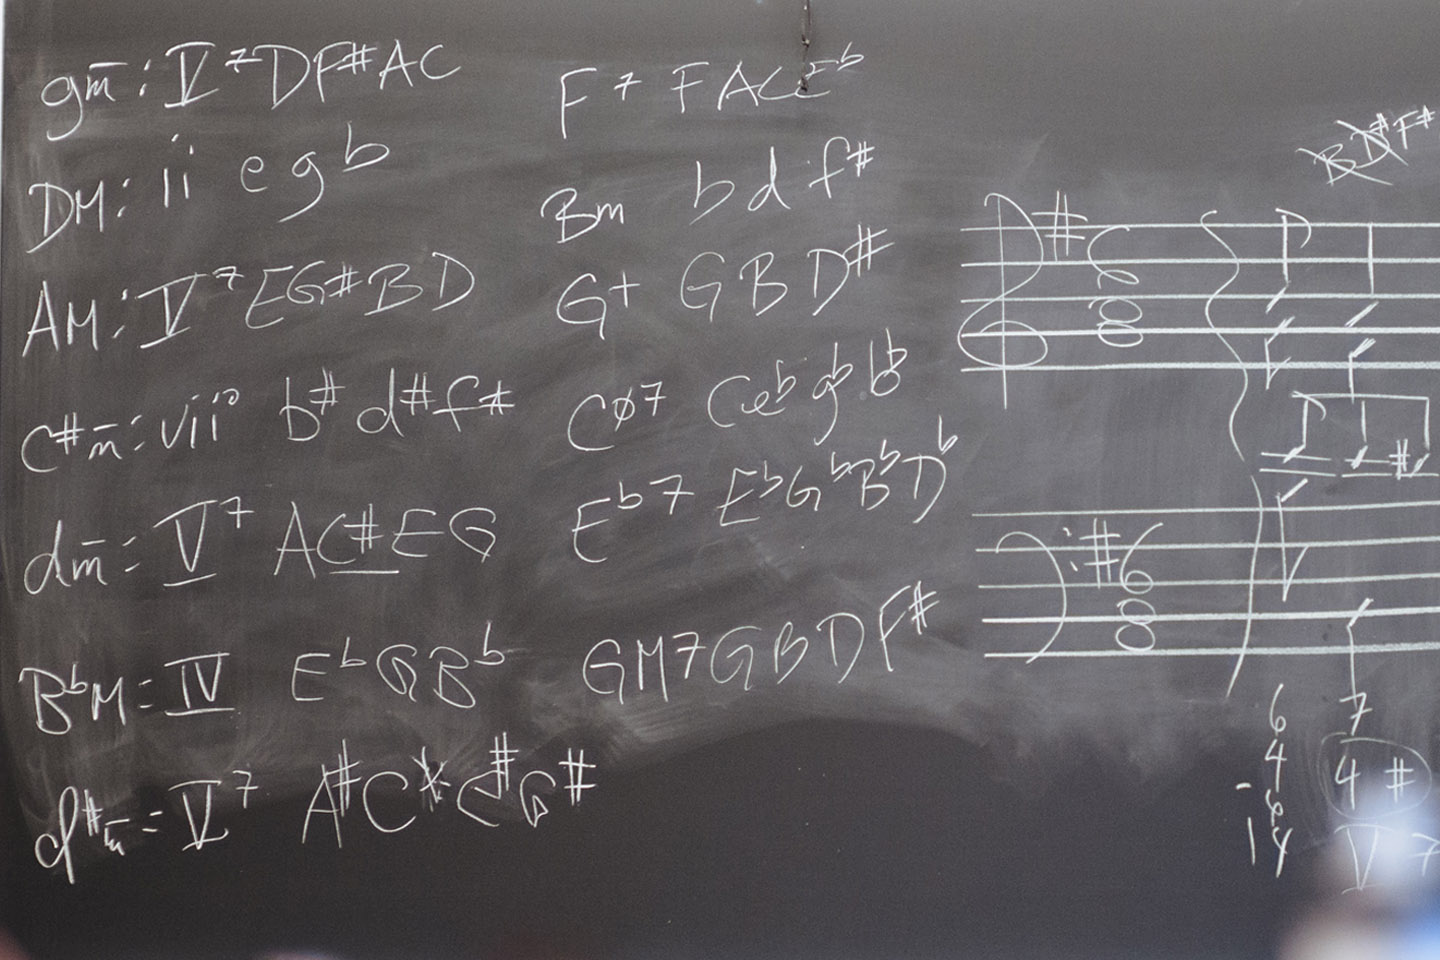 gm: V7 DF#AC
DM: ii e g b
AM: V7 EG#BD
c#m: vii° b# d# f#
dm: V7 AC#EG
B♭M: IV E♭GB♭
V7 A#C
F7 FACE♭
Bm b d f#
G+ G B D#
Cø7 C e♭ g♭ b♭
E♭7 E♭G♭B♭D♭
GM7 GBDF#
BD#F#
# 6 8
# 6 8
6 7
4 4 #
V 7